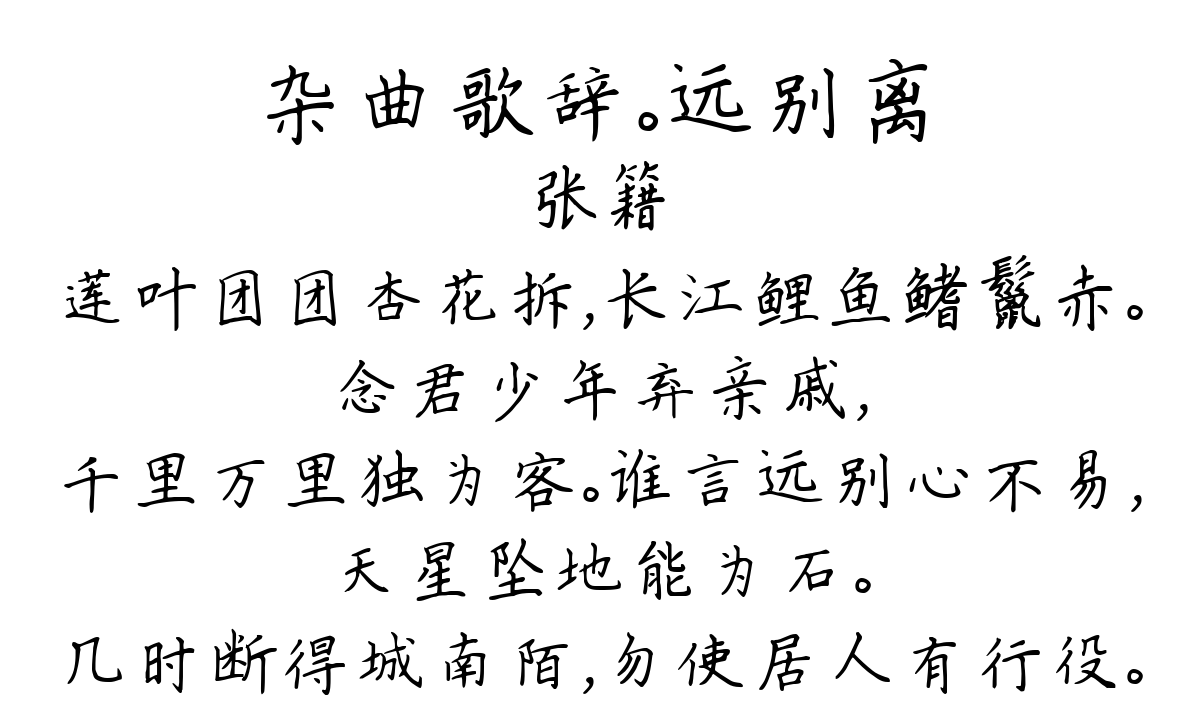 杂曲歌辞。远别离
张籍
莲叶团团杏花拆,长江鲤鱼鳍鬣赤。
念君少年弃亲戚,
千里万里独为客。谁言远别心不易,
天星坠地能为石。
几时断得城南陌,勿使居人有行役。